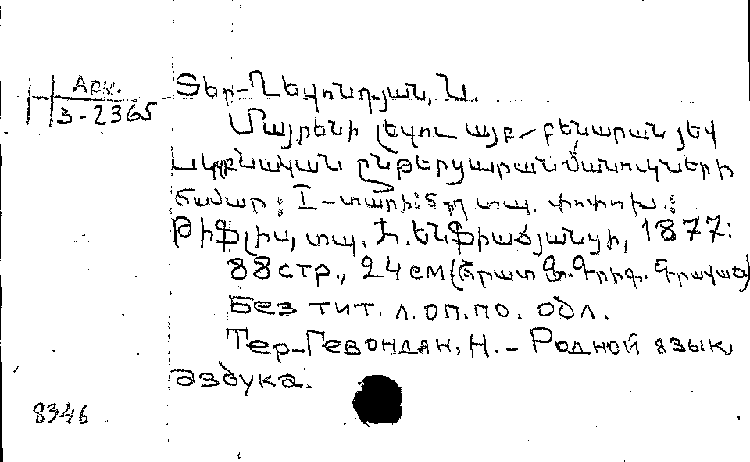 Арм.
3-2365
Տեր-Ղեվոնդյան, Ն.
Մայրենի լեզու այբ-բենարան յեվ
սկզբնական ընթերցարան մանուկների
համար: I-տարի: 5րդ տպ. փոփոխ.:
Թիֆլիս, տպ. Հ. Ենֆիաճյանցի, 1877:
88 стр., 24 см (Հրատ Զ. Գրիգ. Գրավաճ)
Без тит. л. оп. по. обл.
Тер-Гевондян, Н. - Родной язык,
азбука.
8346